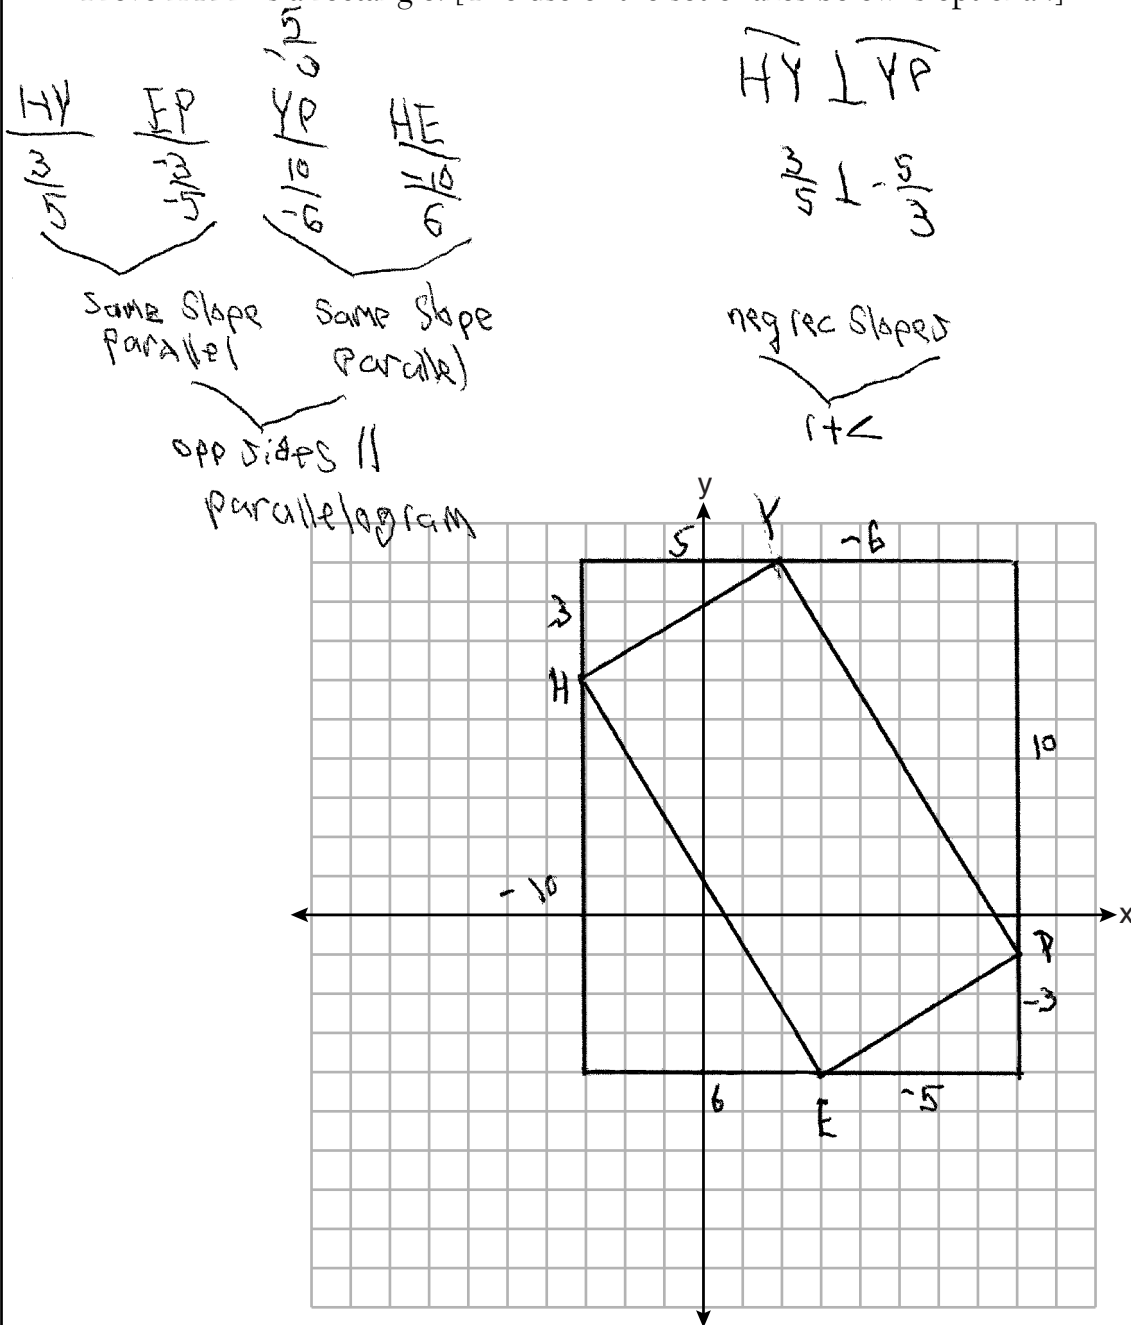 HY EP YP HE
3/5 -3/-5 10/-6 -10/6
same slope parallel
same slope parallel
opp sides ||
parallelogram
HY ⊥ YP
3/5 ⊥ -5/3
neg rec slopes
rt <
y
5 Y -6
3
H
10
-10
x
P
-3
6 E -5